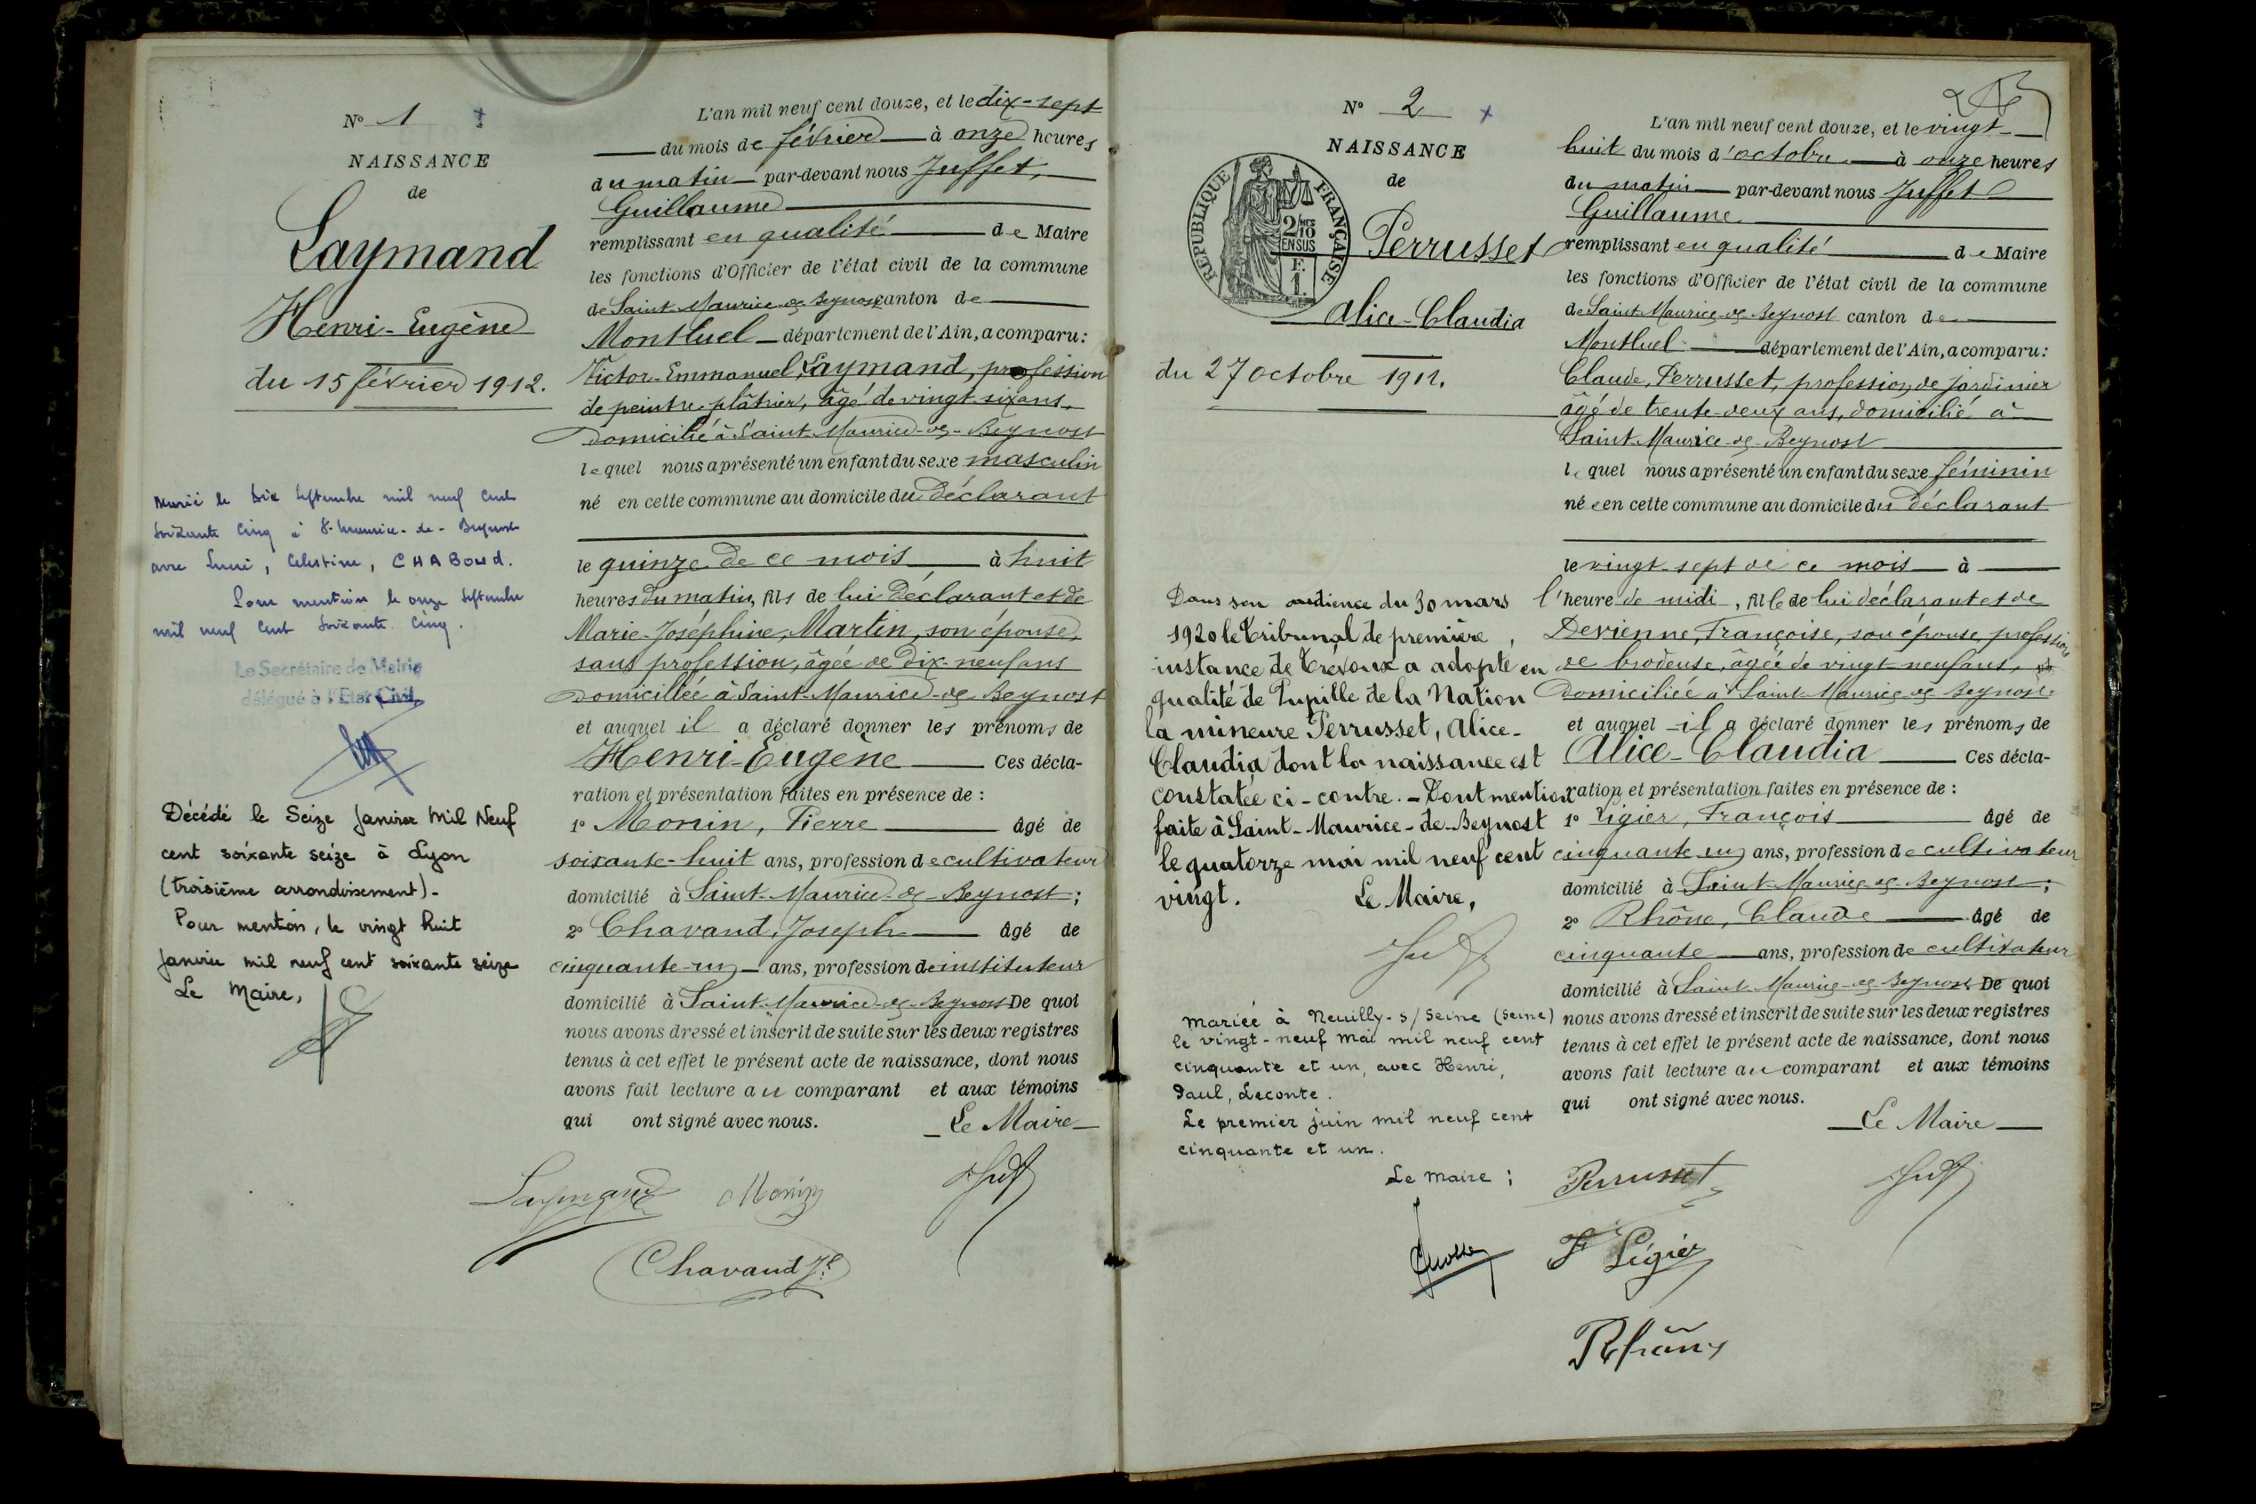 N° 1
NAISSANCE
de
Laymand
Henri-Eugène
du 15 février 1912.
Marié le dix septembre mil neuf cent
soixante cinq à St-Maurice-de-Beynost
avec , Celestine, CHABOUD.
Pour mention le onze septembre
mil neuf cent soixante cinq.
Le Secrétaire de Mairie
délégué à l'Etat Civil,
Décédé le Seize Janvier Mil Neuf
cent soixante seize à Lyon
(troisième arrondissement)-
Pour mention, le vingt huit
janvier mil neuf cent soixante seize
Le Maire,
L'an mil neuf cent douze, et le dix-sept
du mois de février à onze heures
du matin par-devant nous Juffet,
Guillaume
remplissant en qualité de Maire
les fonctions d'Officier de l'état civil de la commune
de Saint-Maurice-de-Beynost canton de
Montluel département de l'Ain, a comparu:
Victor-Emmanuel Laymand, profession
de peintre plâtrier, âgé de vingt-six ans,
domicilié à Saint-Maurice-de-Beynost
lequel nous a présenté un enfant du sexe masculin
né en cette commune au domicile du déclarant
le quinze de ce mois à huit
heures du matin, fils de lui déclarant et de
Marie-Joséphine, Martin, son épouse,
sans profession, âgée de dix-neuf ans
domiciliée à Saint-Maurice-de-Beynost
et auquel il a déclaré donner les prénoms de
Henri-Eugène Ces décla-
ration et présentation faites en présence de :
1° Monin, Pierre âgé de
soixante-huit ans, profession de cultivateur
domicilié à Saint-Maurice-de-Beynost;
2° Chavand, Joseph âgé de
cinquante-un ans, profession de instituteur
domicilié à Saint-Maurice-de-Beynost De quoi
nous avons dressé et inscrit de suite sur les deux registres
tenus à cet effet le présent acte de naissance, dont nous
avons fait lecture au comparant et aux témoins
qui ont signé avec nous.
Le Maire
Laymand Monin
Chavand Jh
N° 2
NAISSANCE
de
RÉPUBLIQUE FRANÇAISE
2/10
EN SUS
F.
1.
Perrusset
Alice-Claudia
du 27 octobre 1912.
Dans son audience du 30 mars
1920 le tribunal de première
instance de Trévoux a adopté en
qualité de Pupille de la Nation
la mineure Perrusset, Alice-
Claudia dont la naissance est
constatée ci-contre. - Dont mention
faite à Saint-Maurice-de-Beynost
le quatorze mai mil neuf cent
vingt. Le Maire,
Mariée à Neuilly-s/Seine (Seine)
le vingt-neuf mai mil neuf cent
cinquante et un, avec Henri,
Paul, Leconte.
Le premier juin mil neuf cent
cinquante et un.
Le Maire ;
L'an mil neuf cent douze, et le vingt-
huit du mois d'octobre à onze heures
du matin par-devant nous Juffet
Guillaume
remplissant en qualité de Maire
les fonctions d'Officier de l'état civil de la commune
de Saint-Maurice-de-Beynost canton de
Montluel département de l'Ain, a comparu:
Claude, Perrusset, profession de jardinier
âgé de trente-deux ans, domicilié à
Saint-Maurice-de-Beynost
lequel nous a présenté un enfant du sexe féminin
née en cette commune au domicile du déclarant
le vingt-sept de ce mois à
l'heure de midi, fille de lui déclarant et de
Devienne, Françoise, son épouse, profession
de brodeuse, âgée de vingt-neuf ans,
domiciliée à Saint-Maurice-de-Beynost.
et auquel il a déclaré donner les prénoms de
Alice-Claudia Ces décla-
ration et présentation faites en présence de :
1° Ligier, François âgé de
cinquante-un ans, profession de cultivateur
domicilié à Saint-Maurice-de-Beynost;
2° Rhône, Claude âgé de
cinquante ans, profession de cultivateur
domicilié à Saint-Maurice-de-Beynost De quoi
nous avons dressé et inscrit de suite sur les deux registres
tenus à cet effet le présent acte de naissance, dont nous
avons fait lecture au comparant et aux témoins
qui ont signé avec nous.
Le Maire
Perrusset
F Ligier
Rhône